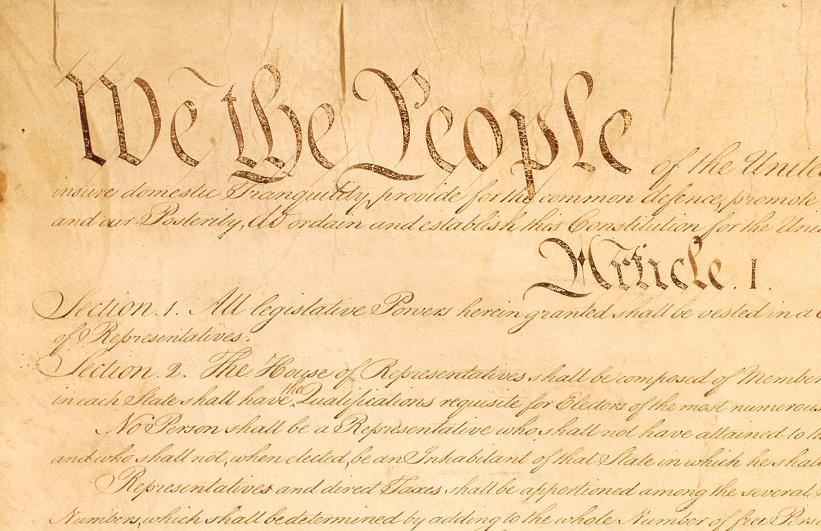 We the People of the United
insure domestic Tranquility, provide for the common defence, promote
and our Posterity, do ordain and establish this Constitution for the Uni
Article. I.
Section. 1. All legislative Powers herein granted shall be vested in a
of Representatives.
Section. 2. The House of Representatives shall be composed of Member
in each State shall have the Qualifications requisite for Electors of the most numerous
No Person shall be a Representative who shall not have attained to
and who shall not, when elected, be an Inhabitant of that State in which he shall
Representatives and direct Taxes shall be apportioned among the several
Numbers, which shall be determined by adding to the whole Number of free Pers